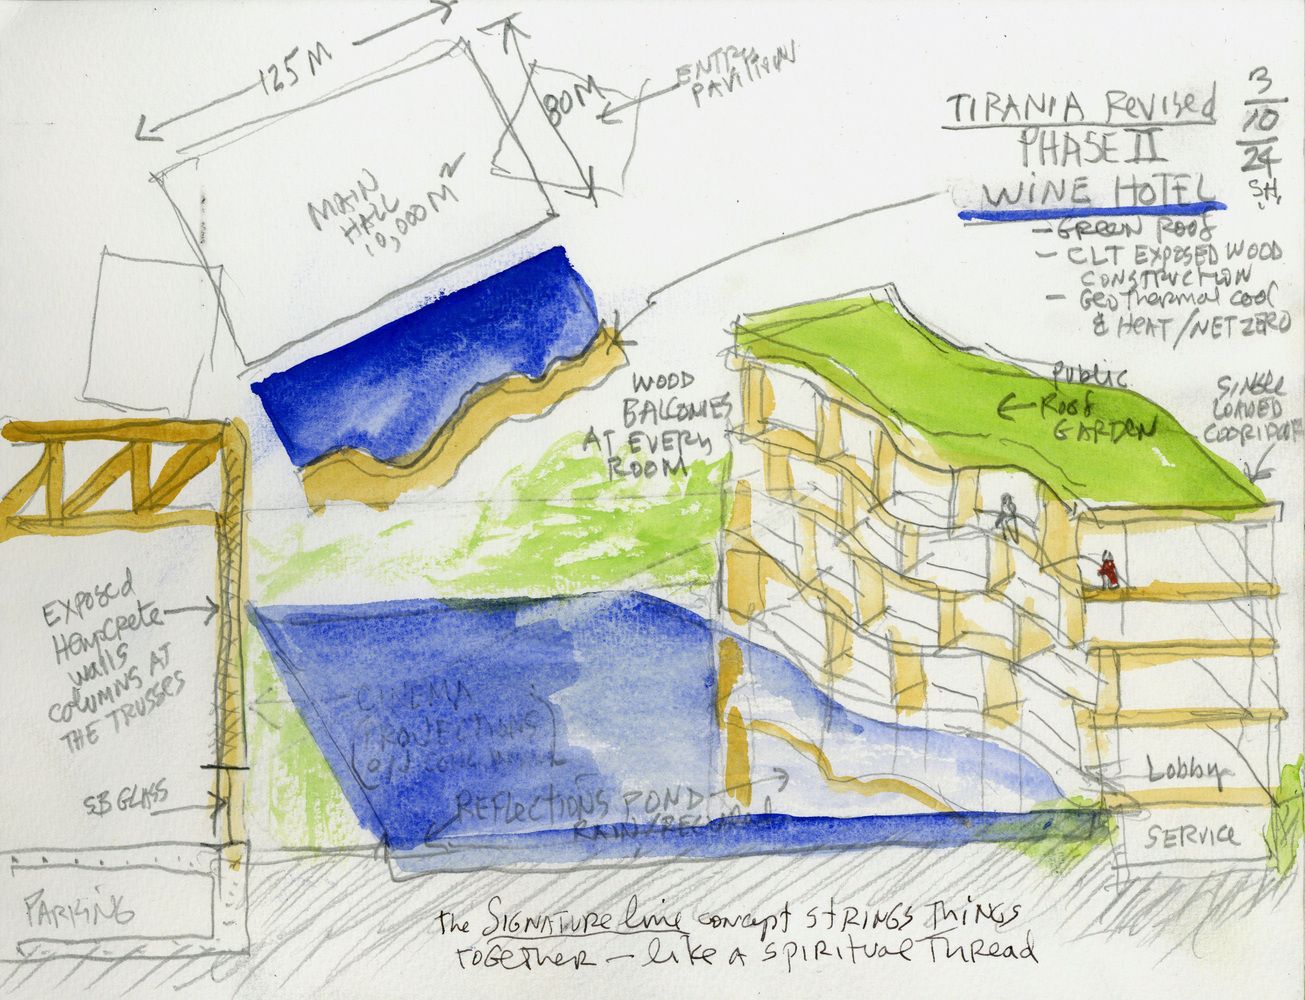 125 M
80M
ENTRY
PAVILION
MAIN
HALL
10,000 M²
TIRANIA REVISED
PHASE II
WINE HOTEL
3/10/24
SH.
- GREEN ROOF
- CLT EXPOSED WOOD
CONSTRUCTION
- GEOTHERMAL COOL
& HEAT / NET ZERO
WOOD
BALCONIES
AT EVERY
ROOM
PUBLIC
ROOF
GARDEN
SINGLE
LOADED
COORIDOR
EXPOSED
HEMPCRETE
WALLS
COLUMNS AT
THE TRUSSES
SB GLASS
PARKING
CINEMA
PROJECTIONS
REFLECTIONS POND
RAIN/
LOBBY
SERVICE
THE SIGNATURE LINE CONCEPT STRINGS THINGS
TOGETHER — LIKE A SPIRITUAL THREAD